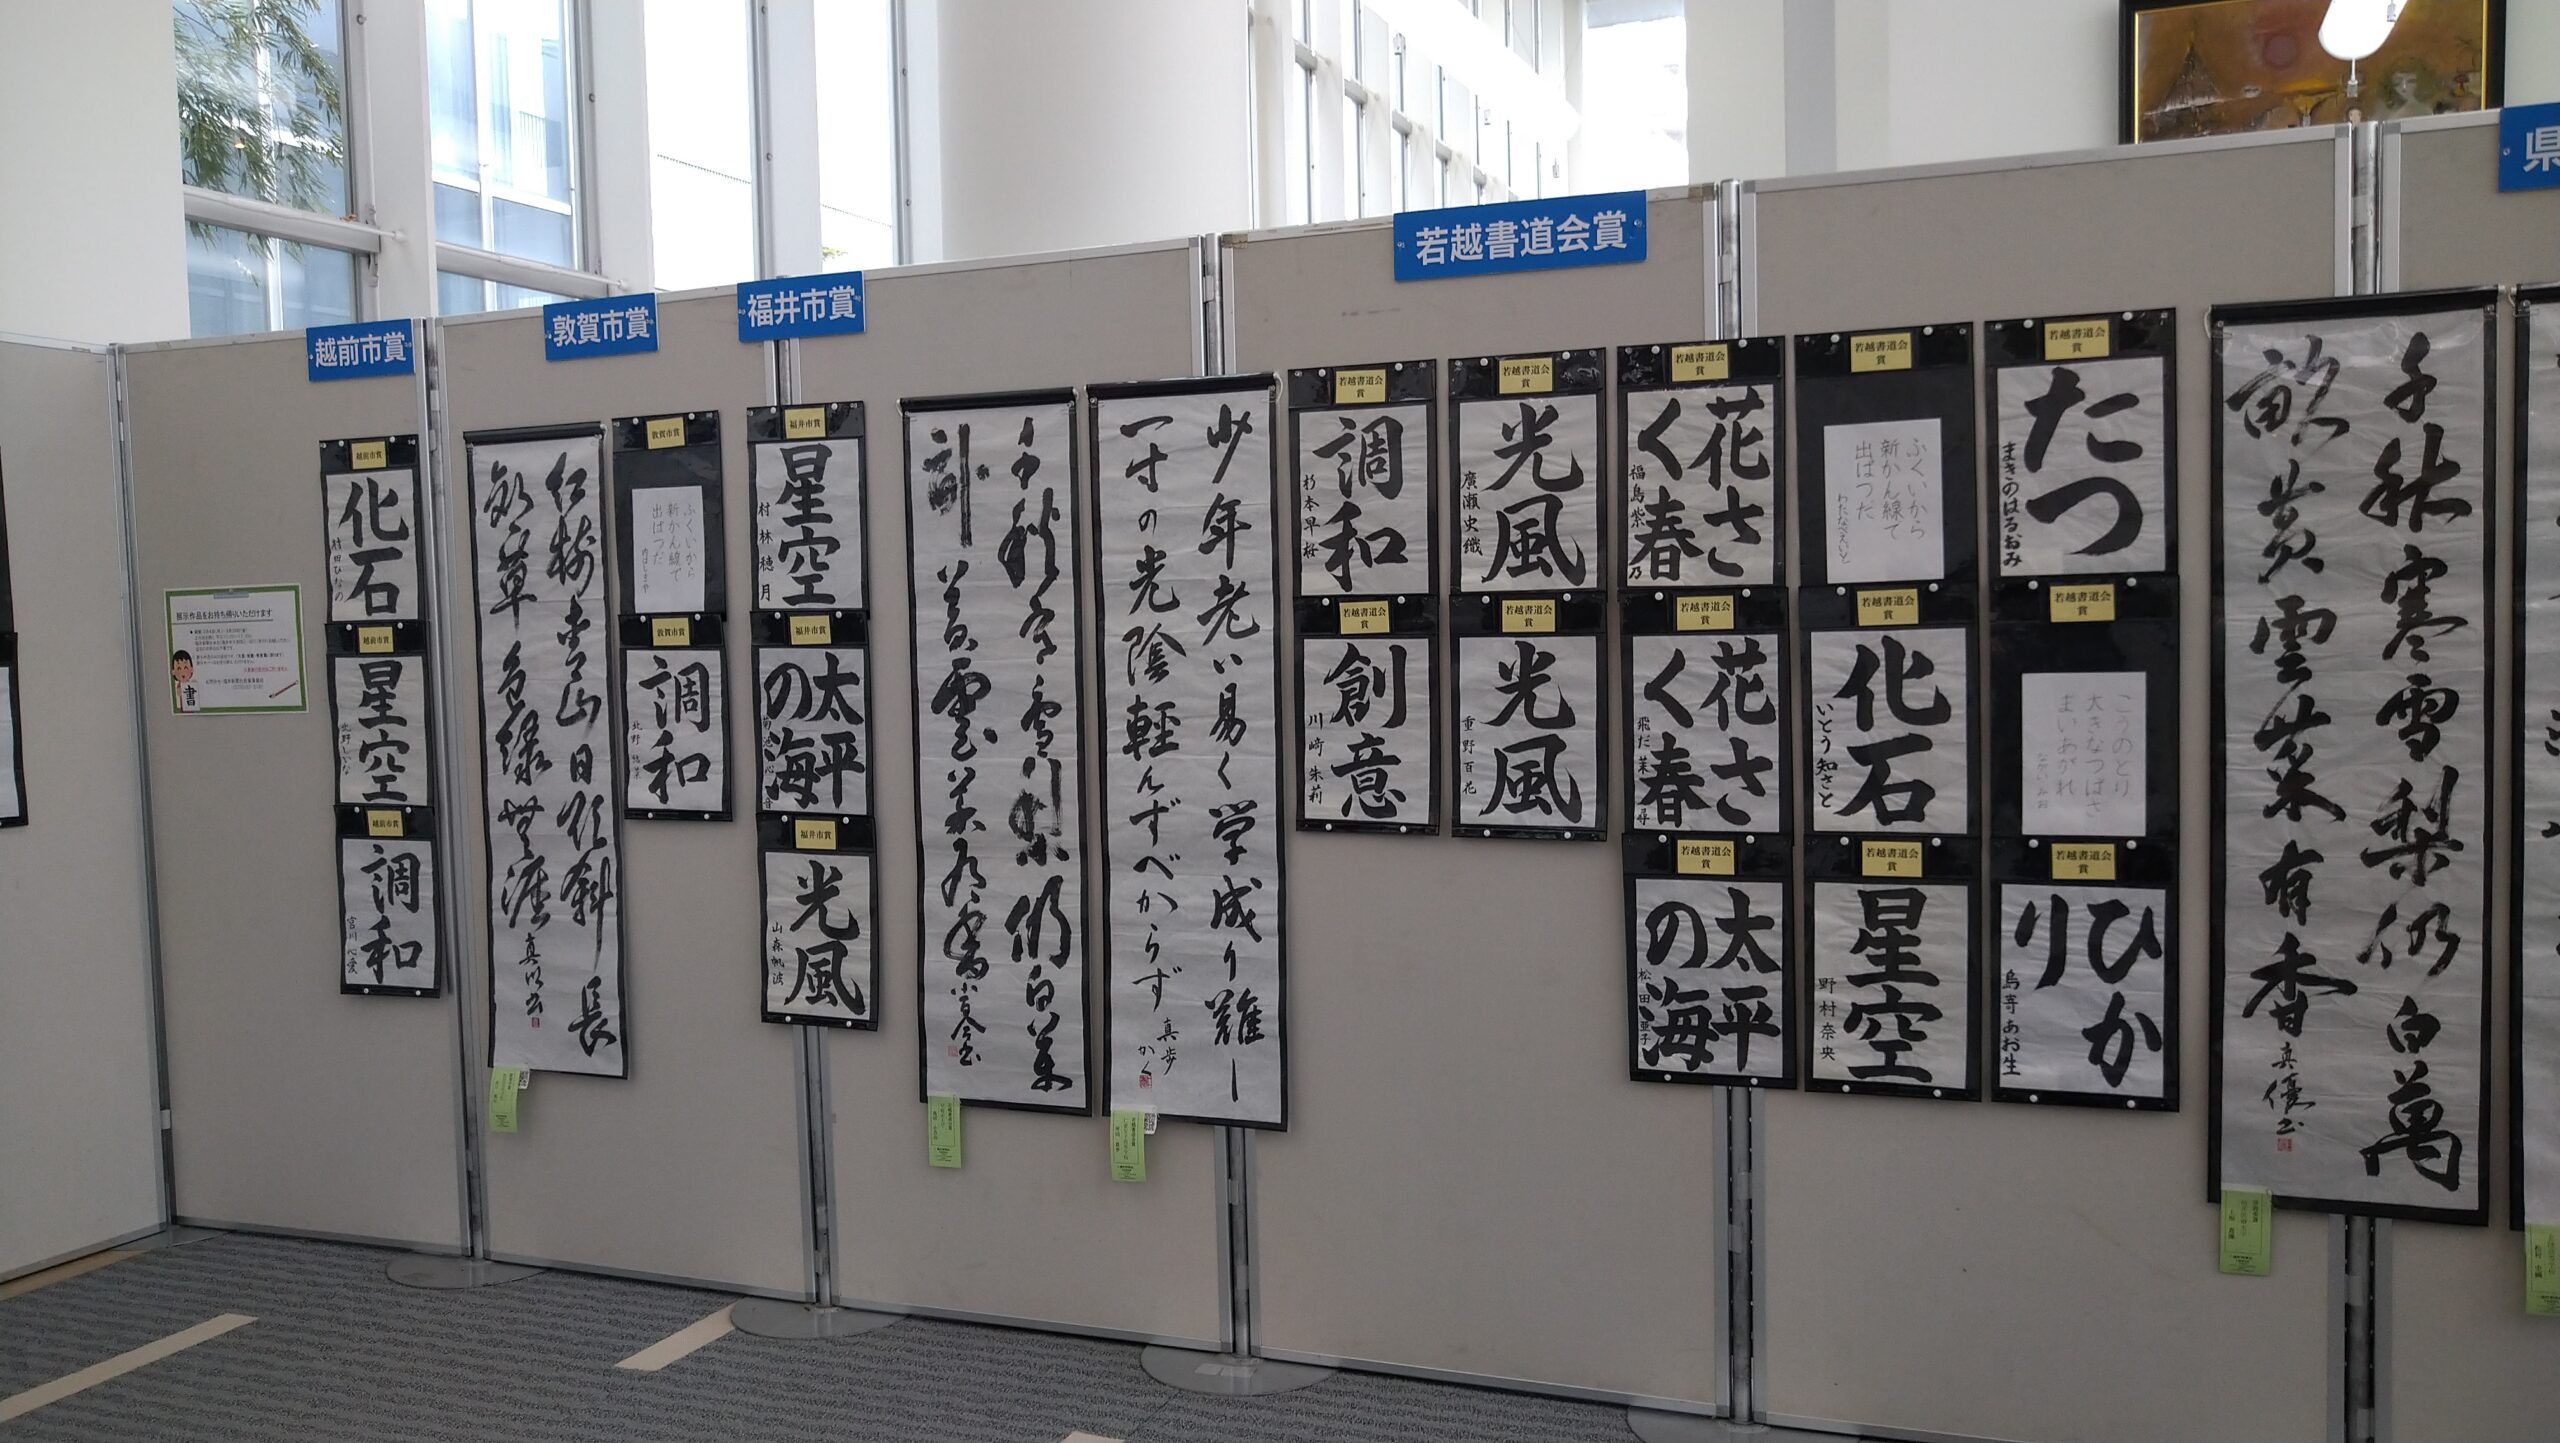 越前市賞
敦賀市賞
福井市賞
若越書道会賞
県
展示作品をお持ち帰りいただけます
書
越前市賞
化石
越前市賞
星空
北野しいな
越前市賞
調和
宮川心愛
紅樹青山日欲斜長
郊草色緑無涯
敦賀市賞
ふくいから
新かん線で
出ぱつだ
敦賀市賞
調和
福井市賞
星空
村林穂月
福井市賞
太平
の海
菊池心音
福井市賞
光風
山森帆波
千秋寒雪梨仍白萬
畝黄雲菜有香
少年老い易く学成り難し
一寸の光陰軽んずべからず
真歩
かく
若越書道会
賞
調和
杉本早桜
若越書道会
賞
創意
川崎朱莉
若越書道会
賞
光風
廣瀬史織
若越書道会
賞
光風
重野百花
若越書道会
賞
花さ
く春
福島紫乃
若越書道会
賞
花さ
く春
飛だ茉尋
若越書道会
賞
太平
の海
松田亜子
若越書道会
賞
ふくいから
新かん線で
出ぱつだ
わたなべえいと
若越書道会
賞
化石
いとう知さと
若越書道会
賞
星空
野村奈央
若越書道会
賞
たつ
まきのはるおみ
若越書道会
賞
こうのとり
大きなつばさ
まいあがれ
若越書道会
賞
ひか
り
千秋寒雪梨仍白萬
畝黄雲菜有香
真優書